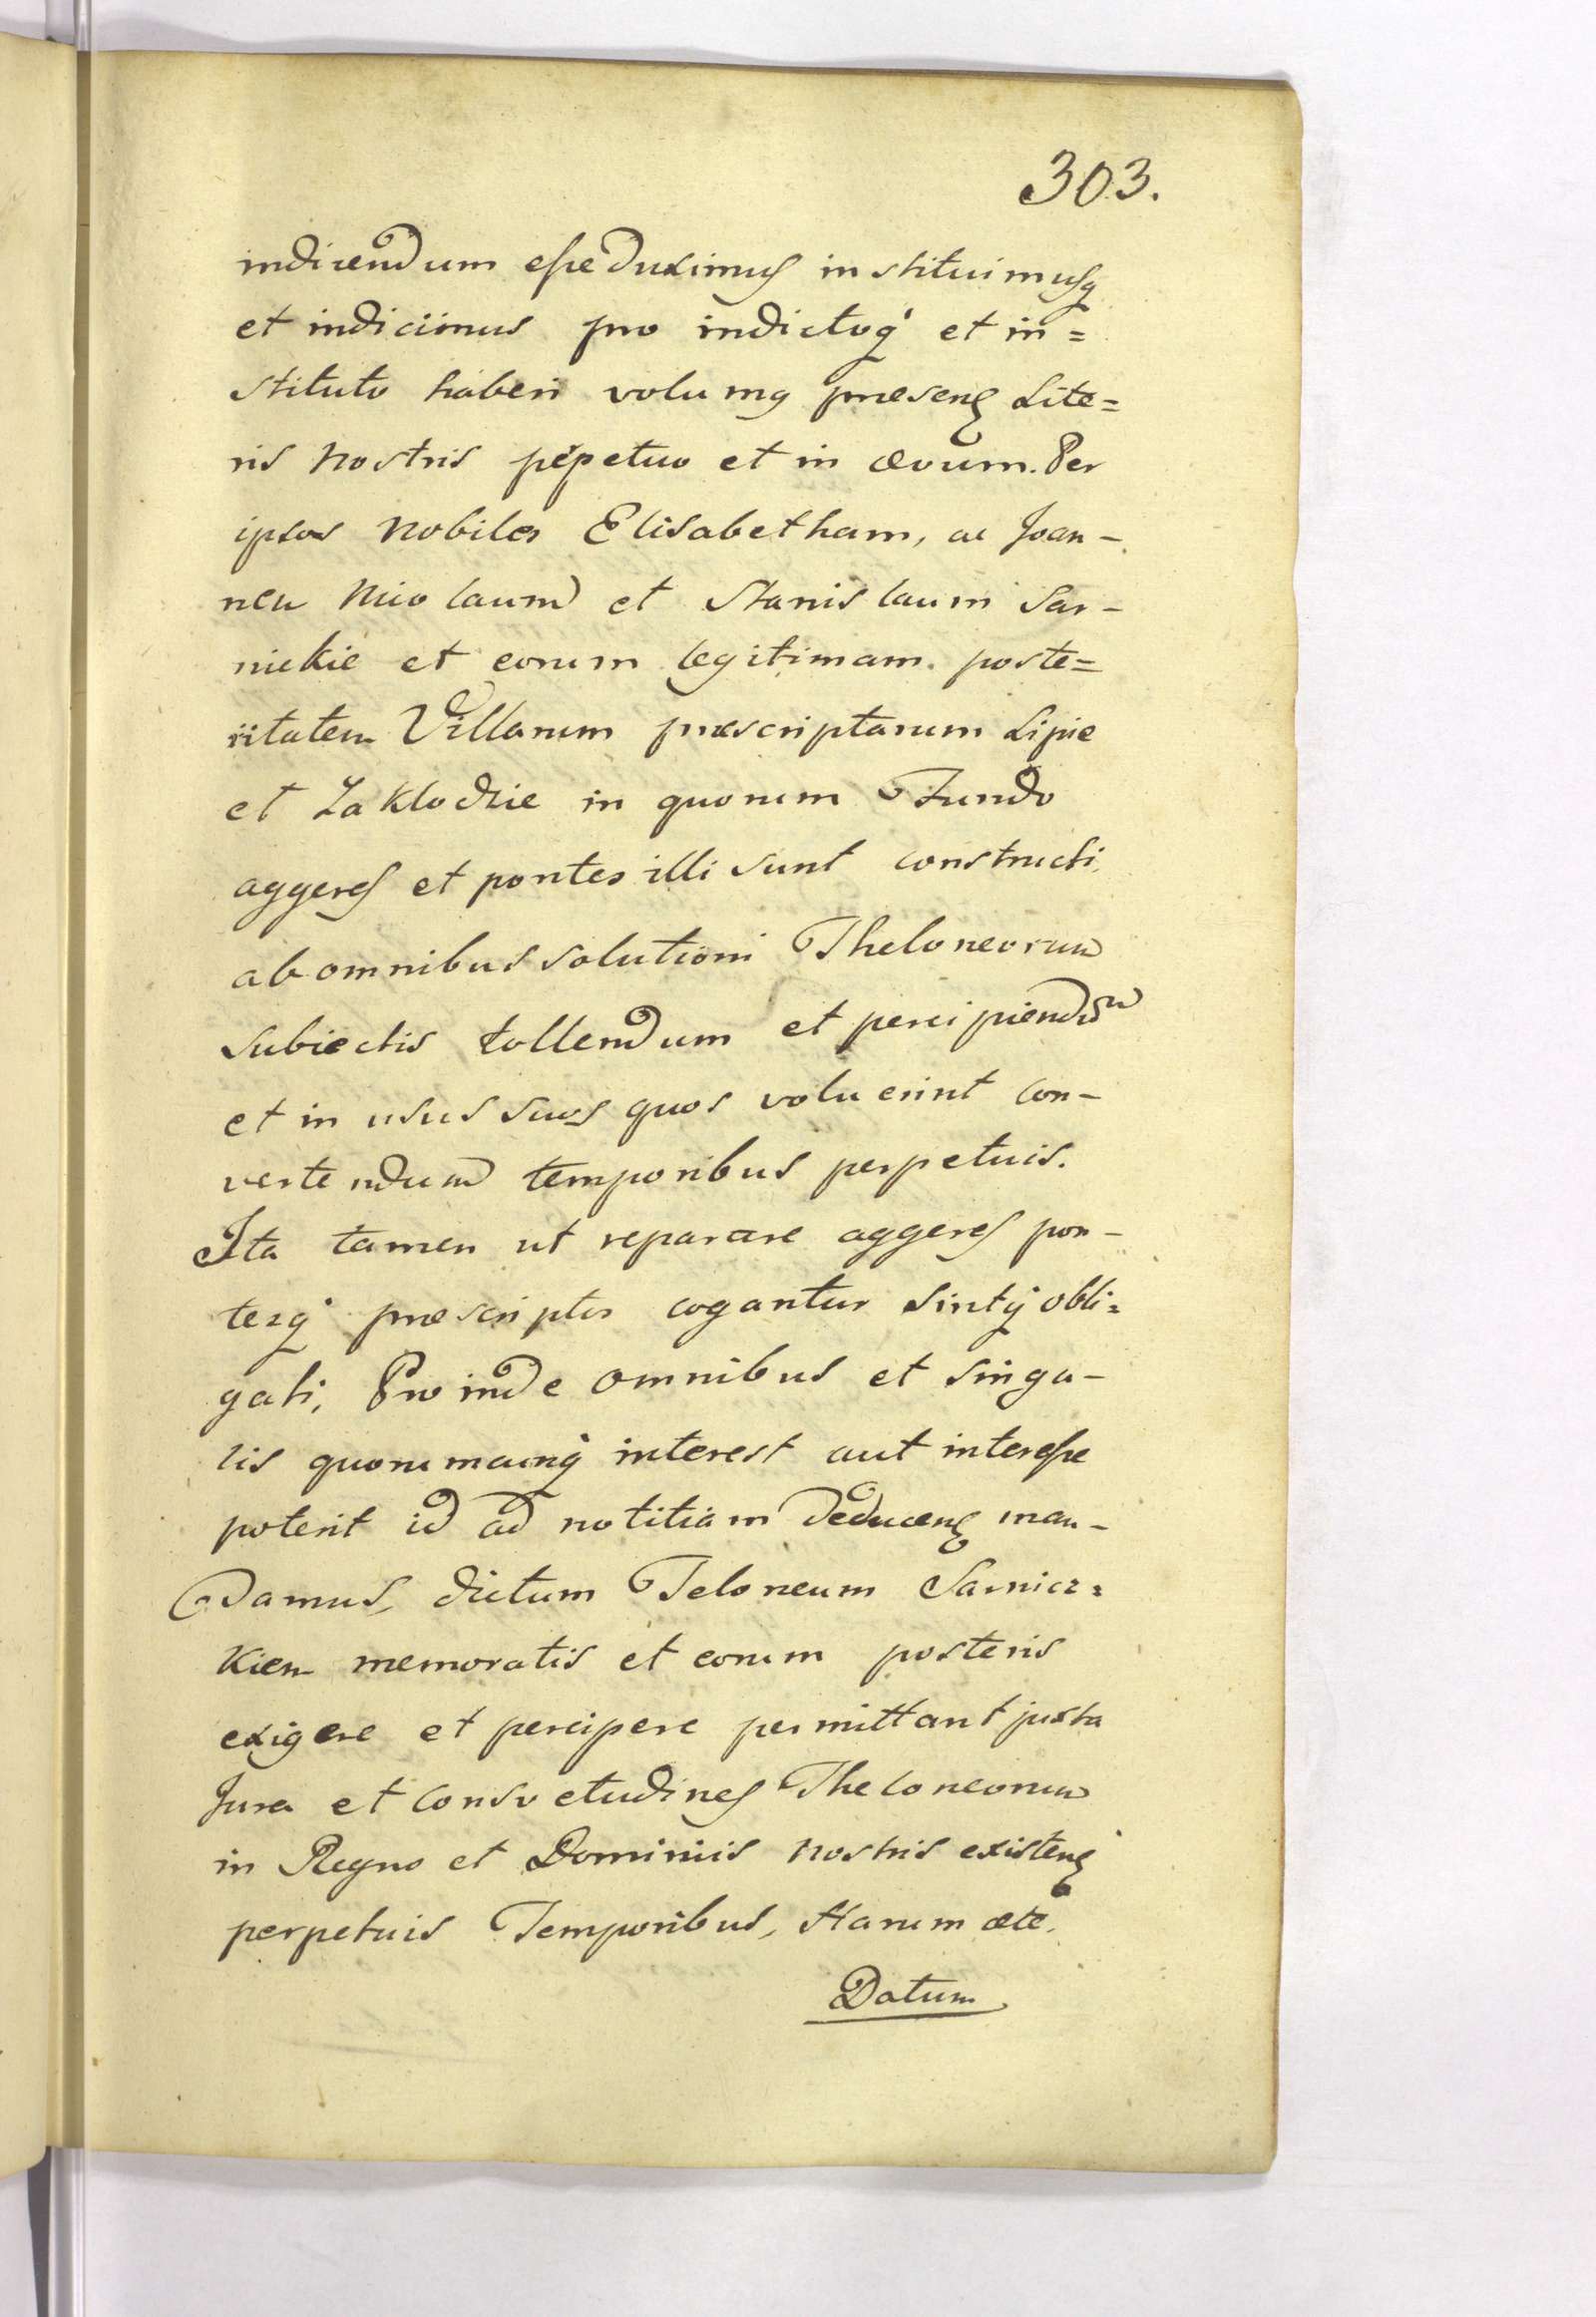 303.
indicendum esse duximus instituimusq
et indicimus pro indictoq et in=
stituto haberi volumq praesenq Lite=
ris nostris ppetuo et in aevum. Per
ipsos Nobiles Elisabetham, ac Joan-
nem Nicolaum et Stanislaum Sar-
nickie et eorum legitimam poste=
ritatem Villarum praescriptarum Lipie
et Zaklodzie in quorum Fundo
aggeres et pontes illi sunt constructi
ab omnibus solutioni Theloneorum
subiectis tollendum et percipiendum
et in usus suos quos voluerint con-
vertendum temporibus perpetuis.
Ita tamen ut reparare aggeres pon-
tesq praescriptos cogantur sintq obli=
gati, Proinde omnibus et singu-
lis quorumcunq interest aut interesse
poterit id ad notitiam deducenq man-
damus, dictum Teloneum Sarnicz=
kien memoratis et eorum posteris
exigere et percipere permittant juxta
Jura et consvetudines Theloneorum
in Regno et Dominiis nostris existenq
perpetuis Temporibus, Harum etc.
Datum